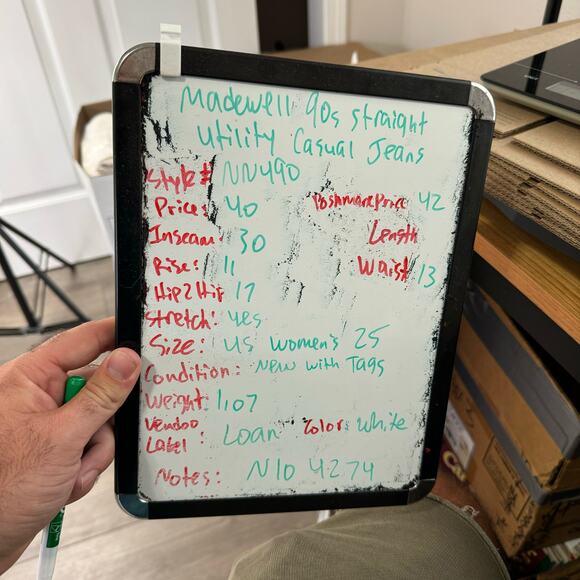 Madewell 90s straight
utility Casual Jeans
Style # NN490
Price: 40 Poshmark Price 42
Inseam 30 Length
Rise: 11 Waist 13
Hip2Hip 17
Stretch: yes
Size: US women's 25
Condition: New with Tags
Weight: 1.07
Vendoo
Label: Loan Color: white
Notes: N10 4274